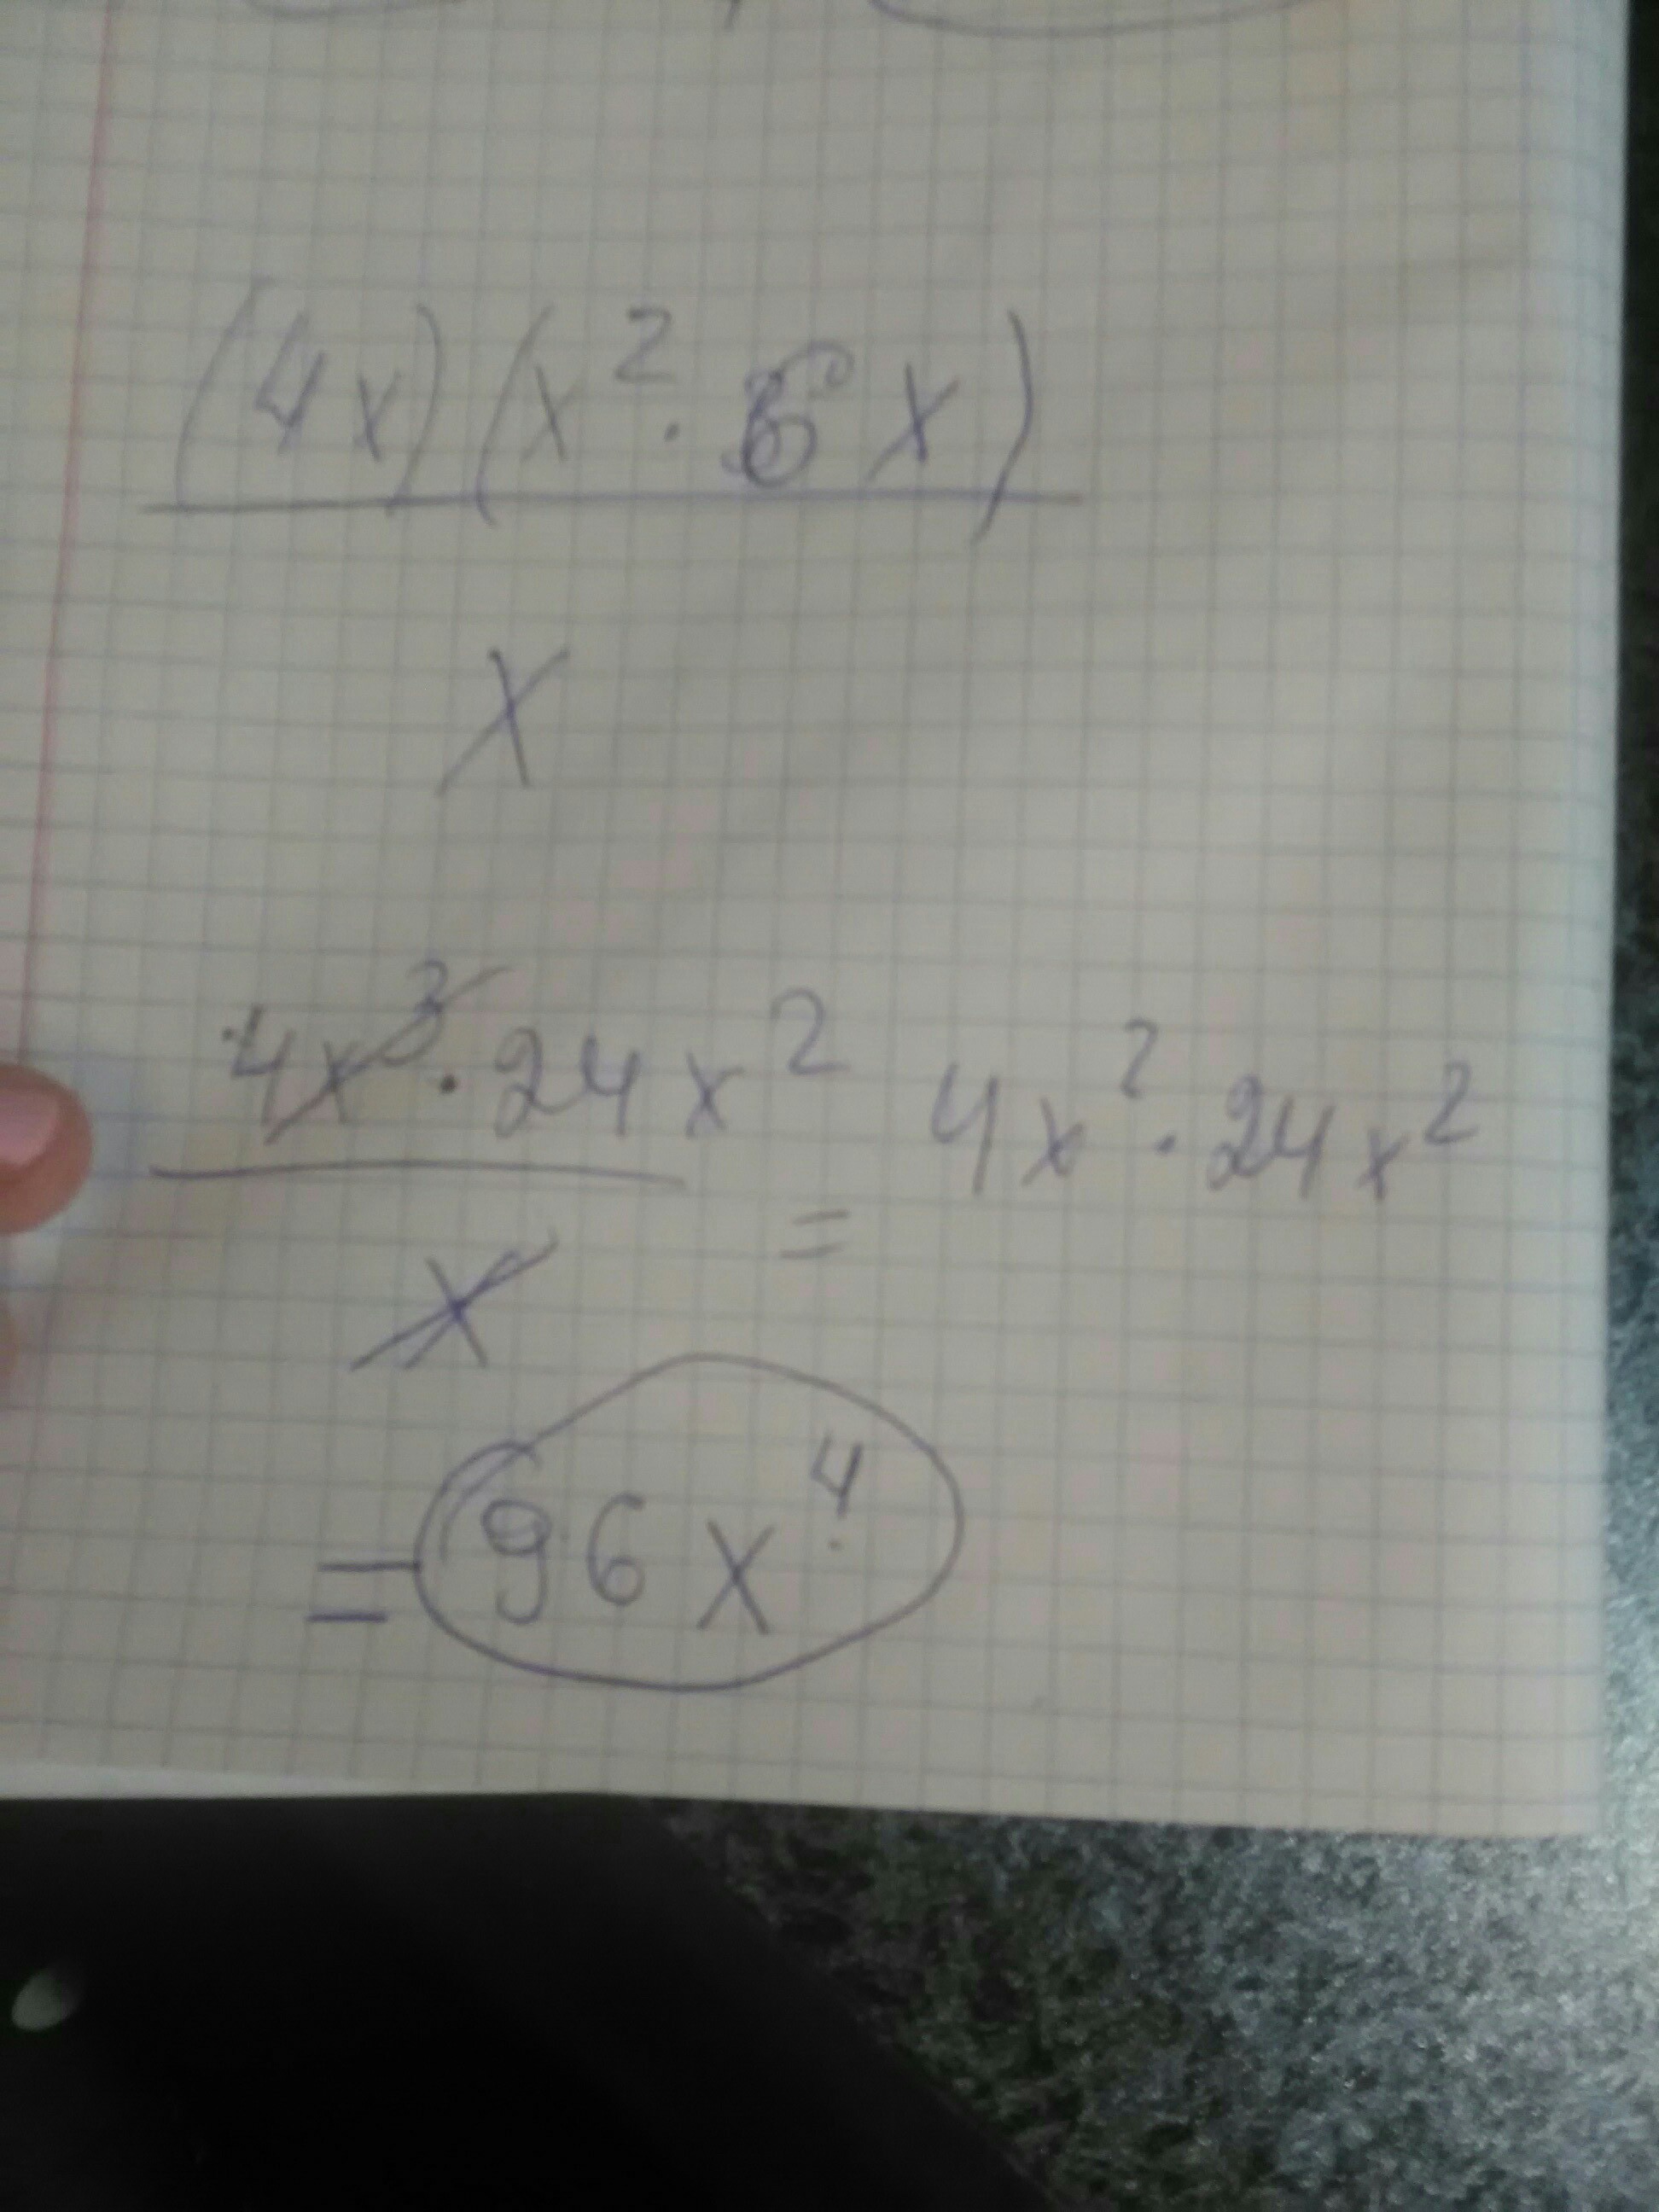 (4x)(x² · 6x)
x
4x³ · 24x² = 4x² · 24x²
x
= 96x⁴